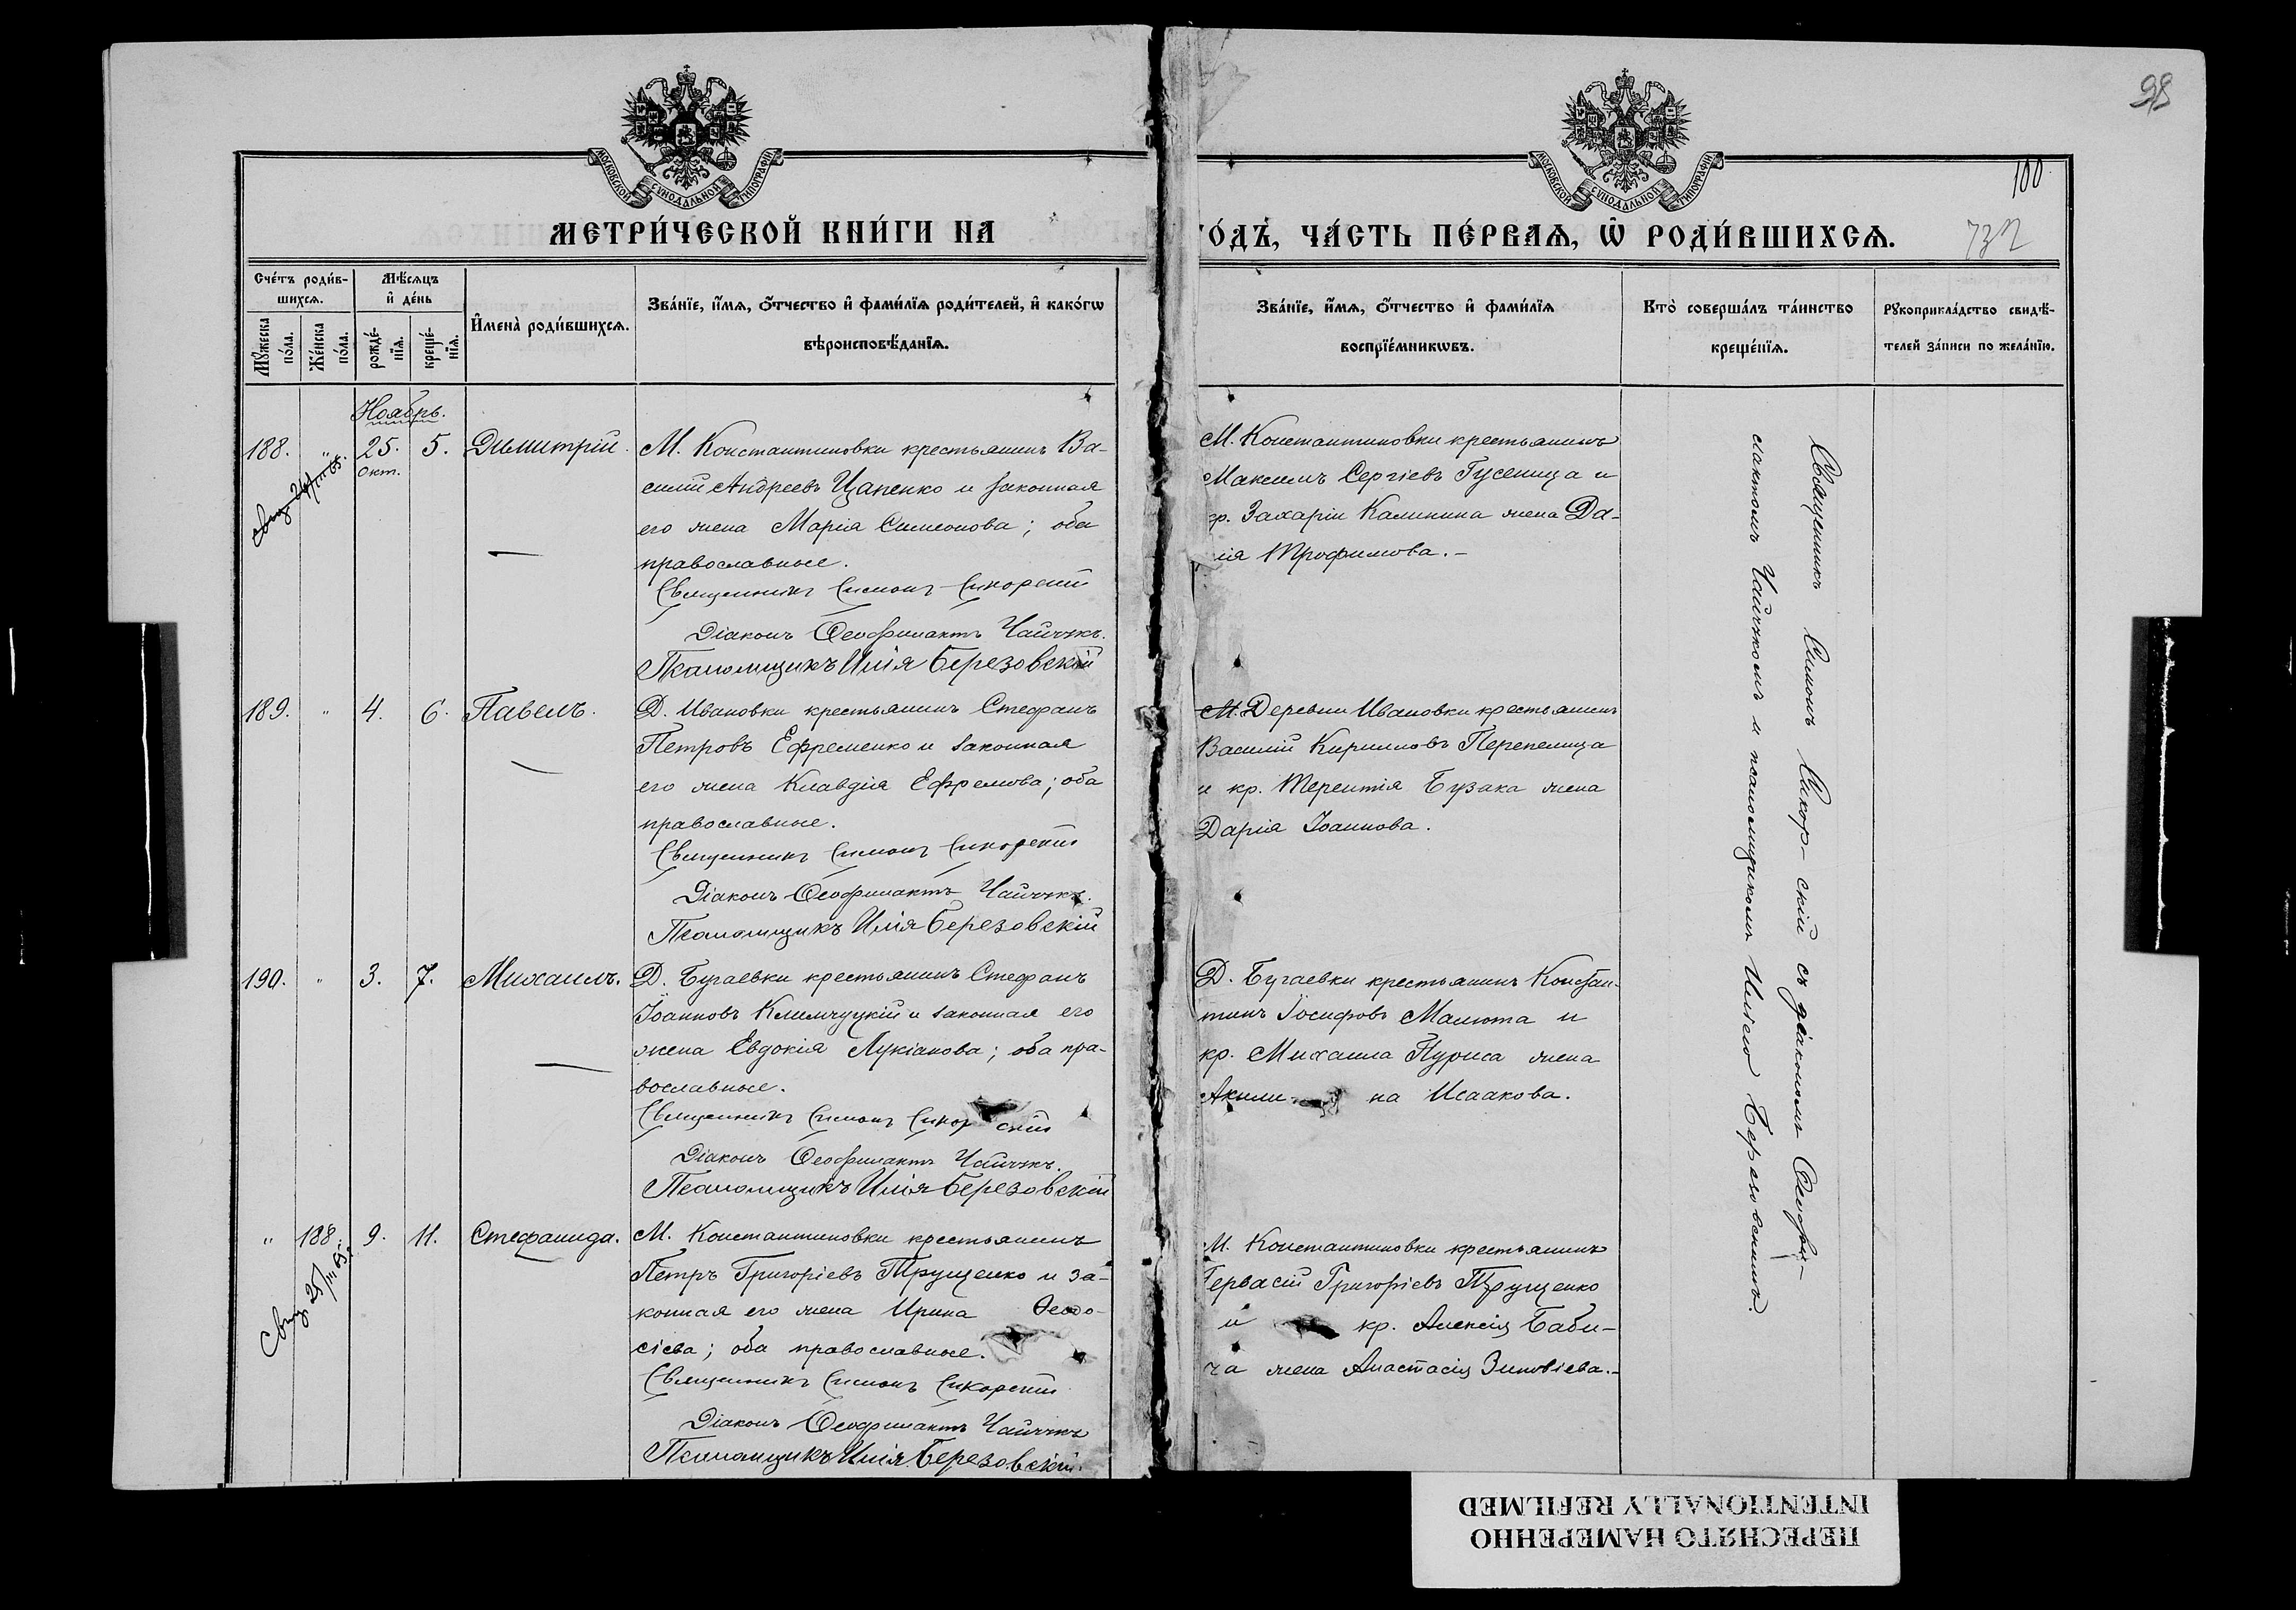 98
100
732
МОСКОВСКОЙ СУНОДАЛЬНОЙ ТИПОГРАФІИ
МОСКОВСКОЙ СУНОДАЛЬНОЙ ТИПОГРАФІИ
МЕТРИ́ЧЕСКОЙ КНИ́ГИ НА
ГО́ДЪ, ЧА́СТЬ ПЕ́РВАѦ, Ѡ҃ РОДИ́ВШИХСѦ.
Сче́тъ роди́в-
шихсѧ.
Мꙋ́жеска по́ла.
Же́нска по́ла.
Мѣ́сѧцъ
и҆ де́нь
рожде́-нїѧ.
креще́-нїѧ.
И҆мена̀ роди́вшихсѧ.
Зва́нїе, и҆́мѧ, ѻ҆́тчество и҆ фами́лїѧ роди́телей, и҆ како́гѡ
вѣроисповѣ́данїѧ.
Зва́нїе, и҆́мѧ, ѻ҆́тчество и҆ фами́лїѧ
воспрїе́мникѡвъ.
Кто̀ соверша́лъ та́инство
креще́нїѧ.
Рꙋкоприкла́дство свидѣ́-
телей за́писи по жела́нїю.
Ноябрь.
188. " 25. Окт. 5. Димитрій.
М. Константиновки крестьянинъ Ва-
силій Андреевъ Цапенко и законная
его жена Марія Симеонова; оба
православные.
Священникъ Симонъ Сикорскій
Діаконъ Ѳеофилактъ Чайчукъ.
Псаломщикъ Илія Березовскій
М. Константиновки крестьянинъ
Максимъ Сергіевъ Гусеница и
кр. Захаріи Калинина жена Да-
рія Трофимова.-
189. " 4. 6. Павелъ.
Д. Ивановки крестьянинъ Стефанъ
Петровъ Ефременко и законная
его жена Клавдія Ефремова; оба
православные.
Священникъ Симонъ Сикорскій
Діаконъ Ѳеофилактъ Чайчукъ.
Псаломщикъ Илія Березовскій
М. Деревни Ивановки крестьянинъ
Василій Кирилловъ Перепелица
и кр. Терентія Бузака жена
Дарія Іоаннова.
190. " 3. 7. Михаилъ.
Д. Бугаевки крестьянинъ Стефанъ
Іоанновъ Климчуцкій и законная его
жена Евдокія Лукіанова; оба пра-
вославные.
Священникъ Симонъ Сикорскій
Діаконъ Ѳеофилактъ Чайчукъ.
Псаломщикъ Илія Березовскій
Д. Бугаевки крестьянинъ Констан-
тинъ Іосифовъ Малюта и
кр. Михаила Пуриса жена
Акилина Исаакова.
" 188. 9. 11. Стефанида.
М. Константиновки крестьянинъ
Петръ Григоріевъ Трущенко и за-
конная его жена Ирина Ѳеодо-
сіева; оба православные.
Священникъ Симонъ Сикорскій
Діаконъ Ѳеофилактъ Чайчукъ
Псаломщикъ Илія Березовскій.
М. Константиновки крестьянинъ
Гервасій Григоріевъ Трущенко
и кр. Алексія Баби-
ча жена Анастасія Зиновіева.-
Священникъ Симонъ Сикор-скій съ діакономъ Ѳеофи-
лактомъ Чайчукомъ и псаломщикомъ Иліею Березовскимъ.
ПЕРЕСНЯТО НАМЕРЕННО
INTENTIONALLY REFILMED